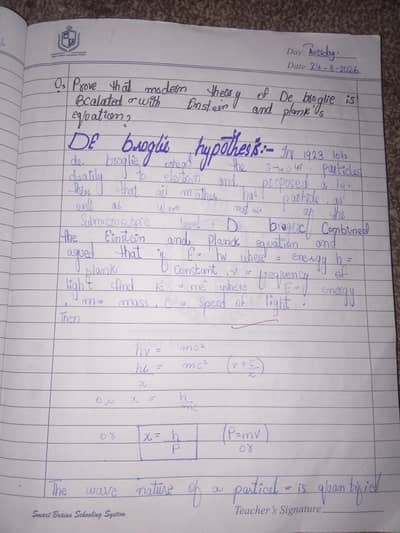 Day: Tuesday
Date: 24-3-2026
Q: Prove that modern theory of De broglie is
with Einstein and plank's
equation?
De broglie hypothesis:- In 1923 
de broglie the particles
duality to electron and proposed a
that all matter has particle as
well as wave of the
De broglie Combined
the Einstein and Planck equation and
agued that if E = hv where = energy h=
plank constant, v = frequency of
light And E = mc² where E = energy
, m = mass, C = speed of light.
Then
hv = mc²
hc = mc² (v = c/x)
x
or x = h
mc
or x = h (P=mv)
P or
The wave nature of a partical = is quantified
Smart Brains Schooling System
Teacher's Signature